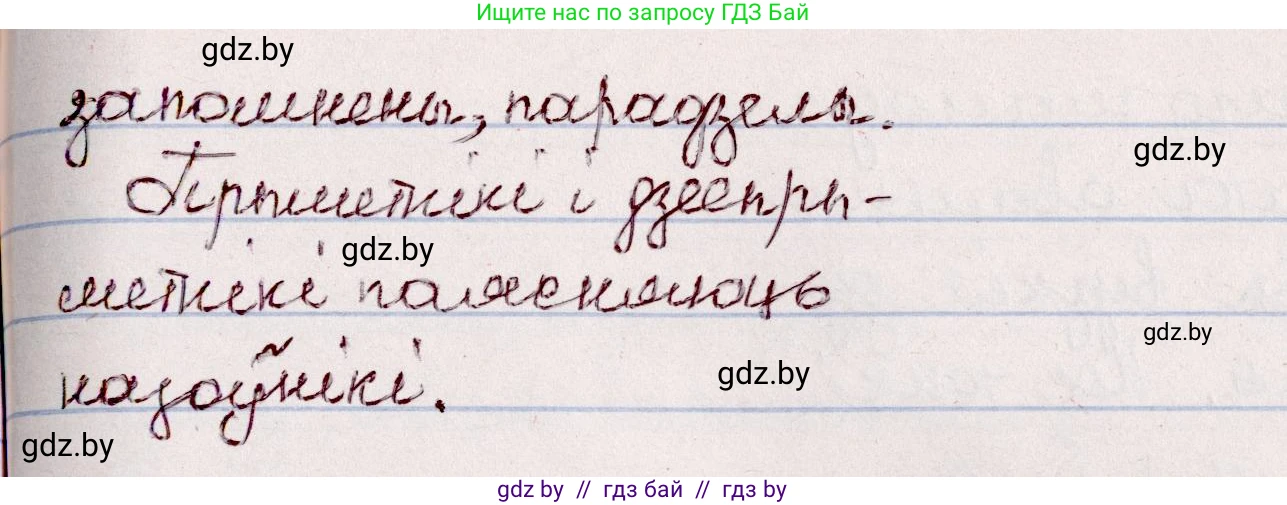 Ищите нас по запросу ГДЗ Бай
gdz.by
запоўнены, парадзелы.
gdz.by
Прыметнікі і дзеепры-
gdz.by
метнікі паясняюць
gdz.by
назоўнікі.
gdz.by
gdz.by
gdz by // гдз бай // гдз by